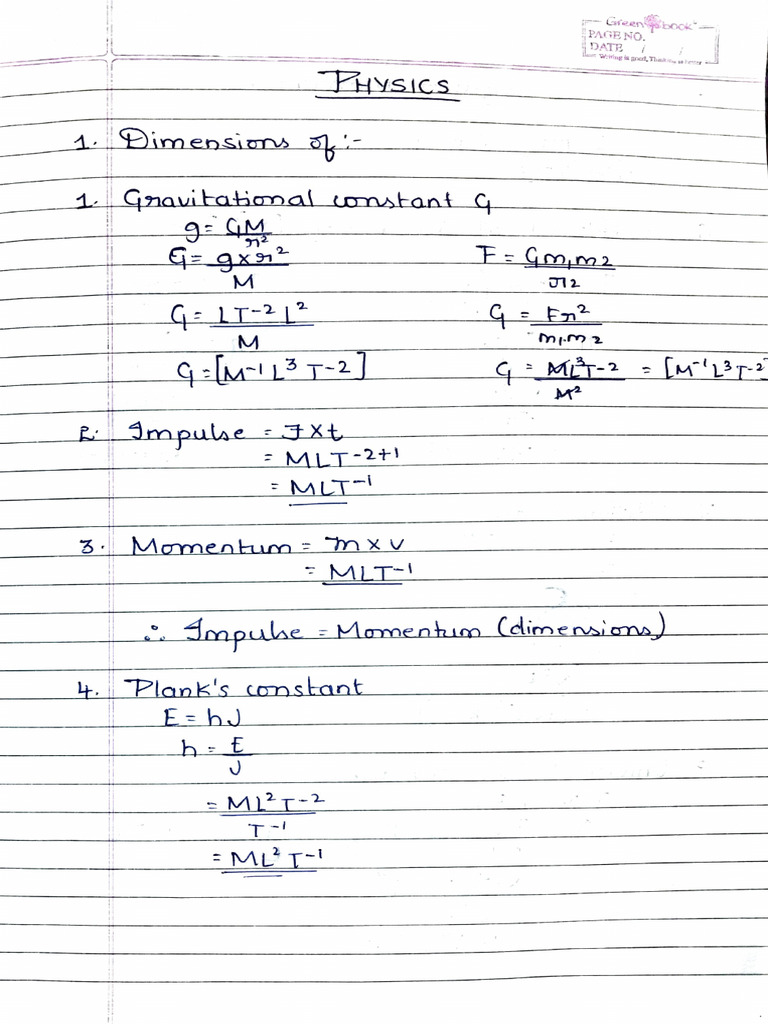 Green book
PAGE NO.
DATE / /
PHYSICS
1. Dimensions of :-
1. Gravitational constant G
g = GM/r²
G = g×r²/M
G = LT-2 L²/M
G = [M-1 L3 T-2]
F = Gm1m2/r2
G = Fr²/m1.m2
G = ML3T-2/M² = [M-1L3T-2]
2. Impulse = F×t
= MLT-2+1
= MLT-1
3. Momentum = m×v
= MLT-1
∴ Impulse = Momentum (dimensions)
4. Plank's constant
E = hν
h = E/ν
= ML²T-2/T-1
= ML²T-1